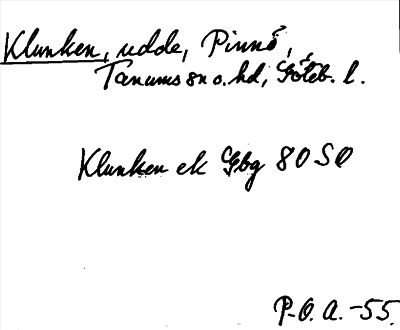 Klunken, udde, Pinnö,
Tanums sn o. hd, Göteb. l.
Klunken ek Gbg 80 SO
P.O.A. -55.